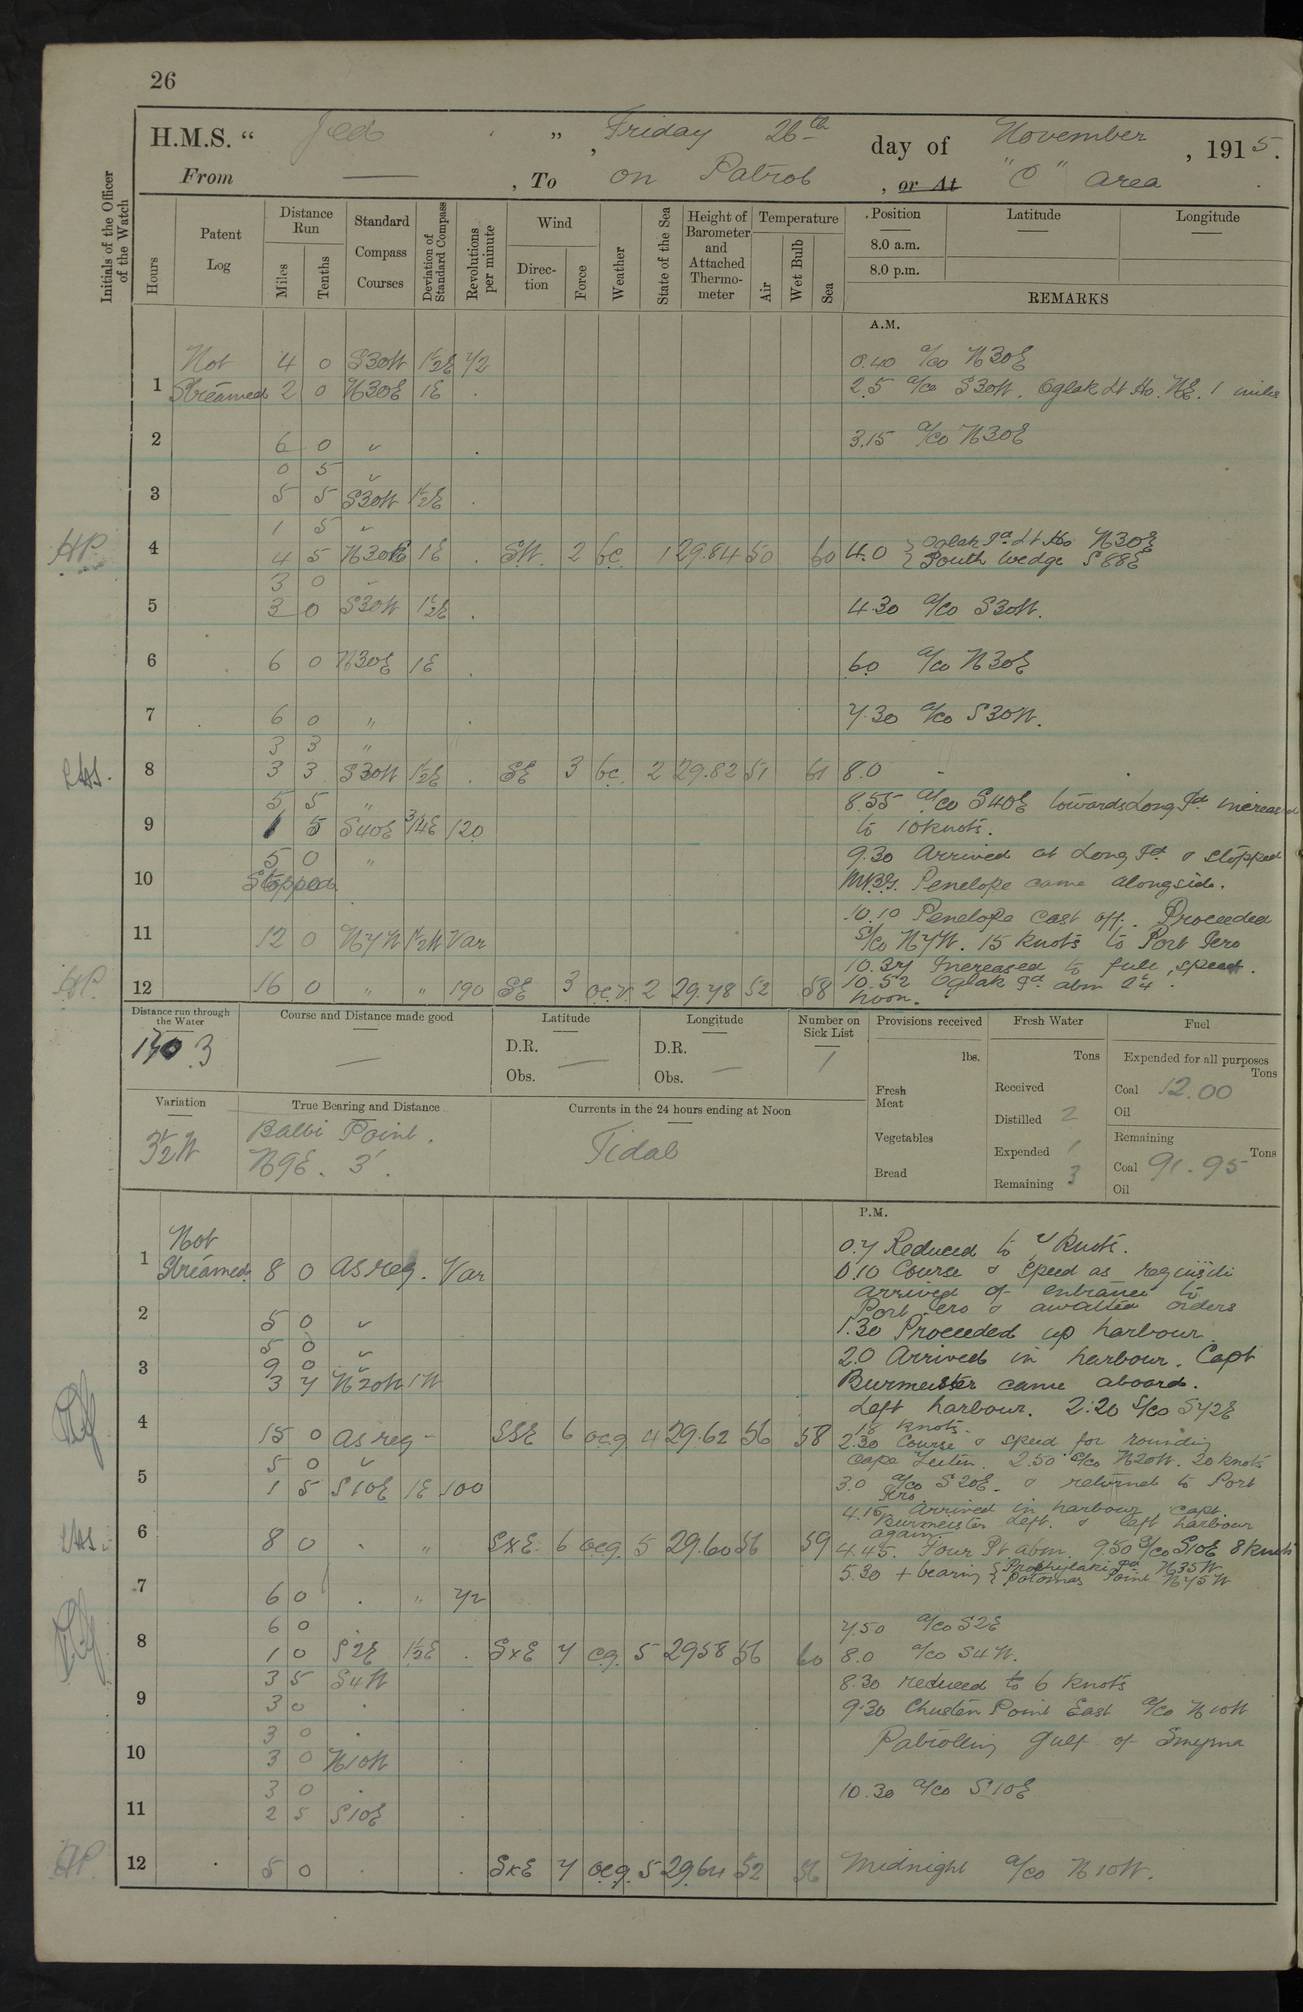 26
H.M.S. “ Jed ” , Friday 26th day of November , 1915.
From — , To on Patrol , or At "C" area
Initials of the Officer of the Watch
Hours
Patent Log
Distance Run
Miles
Tenths
Standard Compass Courses
Deviation of Standard Compass
Revolutions per minute
Wind
Direction
Force
Weather
State of the Sea
Height of Barometer and Attached Thermometer
Temperature
Air
Wet Bulb
Sea
Position
Latitude
Longitude
8.0 a.m.
8.0 p.m.
REMARKS
A.M.
Not 4 0 S30W 1½E 72 0.40 a/co N30E
1 Streamed 2 0 N30E 1E . 2.5 a/co S30W. Oglak Lt Ho. NE. 1 mile
2 6 0 " . 3.15 a/co N30E
0 5 "
3 5 5 S30W 1½E .
1 5 "
HP. 4 4 5 N30E 1E . SW. 2 bc. 1 29.84 50 60 4.0 { Oglak Id Lt Ho N30E
{ South Wedge S88E
3 0 "
5 3 0 S30W 1½E . 4.30 a/co S30W.
6 6 0 N30E 1E . 6.0 a/co N30E
7 6 0 " . 7.30 a/co S30W.
3 3 "
8 3 3 S30W 1½E . SE 3 bc. 2 29.82 51 61 8.0
5 5 " 8.55 a/co S40E towards Long Id increased
9 1 5 S40E ¾E 120 to 10 knots.
5 0 " 9.30 Arrived at Long Id & stopped
10 Stopped Penelope came alongside.
10.10 Penelope cast off. Proceeded
11 12 0 N7W 1½W Var S/co N7W. 15 knots to Port Iero
10.37 Increased to full speed.
HP. 12 16 0 " " 190 SE 3 oc.v. 2 29.78 52 58 10.52 Oglak Id abm
Noon.
Distance run through the Water
130.3
Course and Distance made good
—
Latitude
D.R. —
Obs.
Longitude
D.R. —
Obs.
Number on Sick List
1
Provisions received
lbs.
Fresh Meat
Vegetables
Bread
Fresh Water
Tons
Received
Distilled 2
Expended 1
Remaining 3
Fuel
Expended for all purposes
Tons
Coal 12.00
Oil
Remaining
Tons
Coal 91.95
Oil
Variation
3½W
True Bearing and Distance
Balbi Point.
N9E. 3'.
Currents in the 24 hours ending at Noon
Tidal
P.M.
Not 0.7 Reduced to 7 knots.
1 Streamed. 8 0 as req. Var 0.10 Course & speed as requisite
arrived off entrance to
2 5 0 " Port Iero & awaited orders
5 0 " 1.30 Proceeded up harbour.
9 0 " 2.0 Arrived in harbour. Capt
3 3 7 N20W 1W Burmeister came aboard.
Left harbour. 2.20 S/co S72E
18 knots.
4 15 0 as req - SSE 6 ocg 4 29.62 56 58 2.30 Course & speed for rounding
5 0 " Cape 2.50 a/co N20W. 20 knots
5 1 5 S10E 1E 100 3.0 a/co S20E. & returned to Port
Iero.
4.15 Arrived in harbour Capt.
Burmeister left. & left harbour
again.
6 8 0 . " SxE 6 ocg. 5 29.60 56 59 4.45. Four Pt abm. S/co S10E 8 knots
5.30 + bearing { Prophylaki Pt N35W
{ Potomas Point N75W
7 6 0 . " 72
6 0 7.50 a/co S2E
8 1 0 S2E 1½E . SxE 7 cg. 5 29.58 56 60 8.0 a/co S4W.
3 5 S4W 8.30 reduced to 6 knots
9 3 0 . . 9.30 Chustan Point East a/co N10W
3 0 . Patrolling Gulf of Smyrna
10 3 0 N10W .
3 0 . 10.30 a/co S10E
11 2 5 S10E .
HP. 12 5 0 . . SxE 7 ocg. 5 29.64 52 56 Midnight a/co N10W.